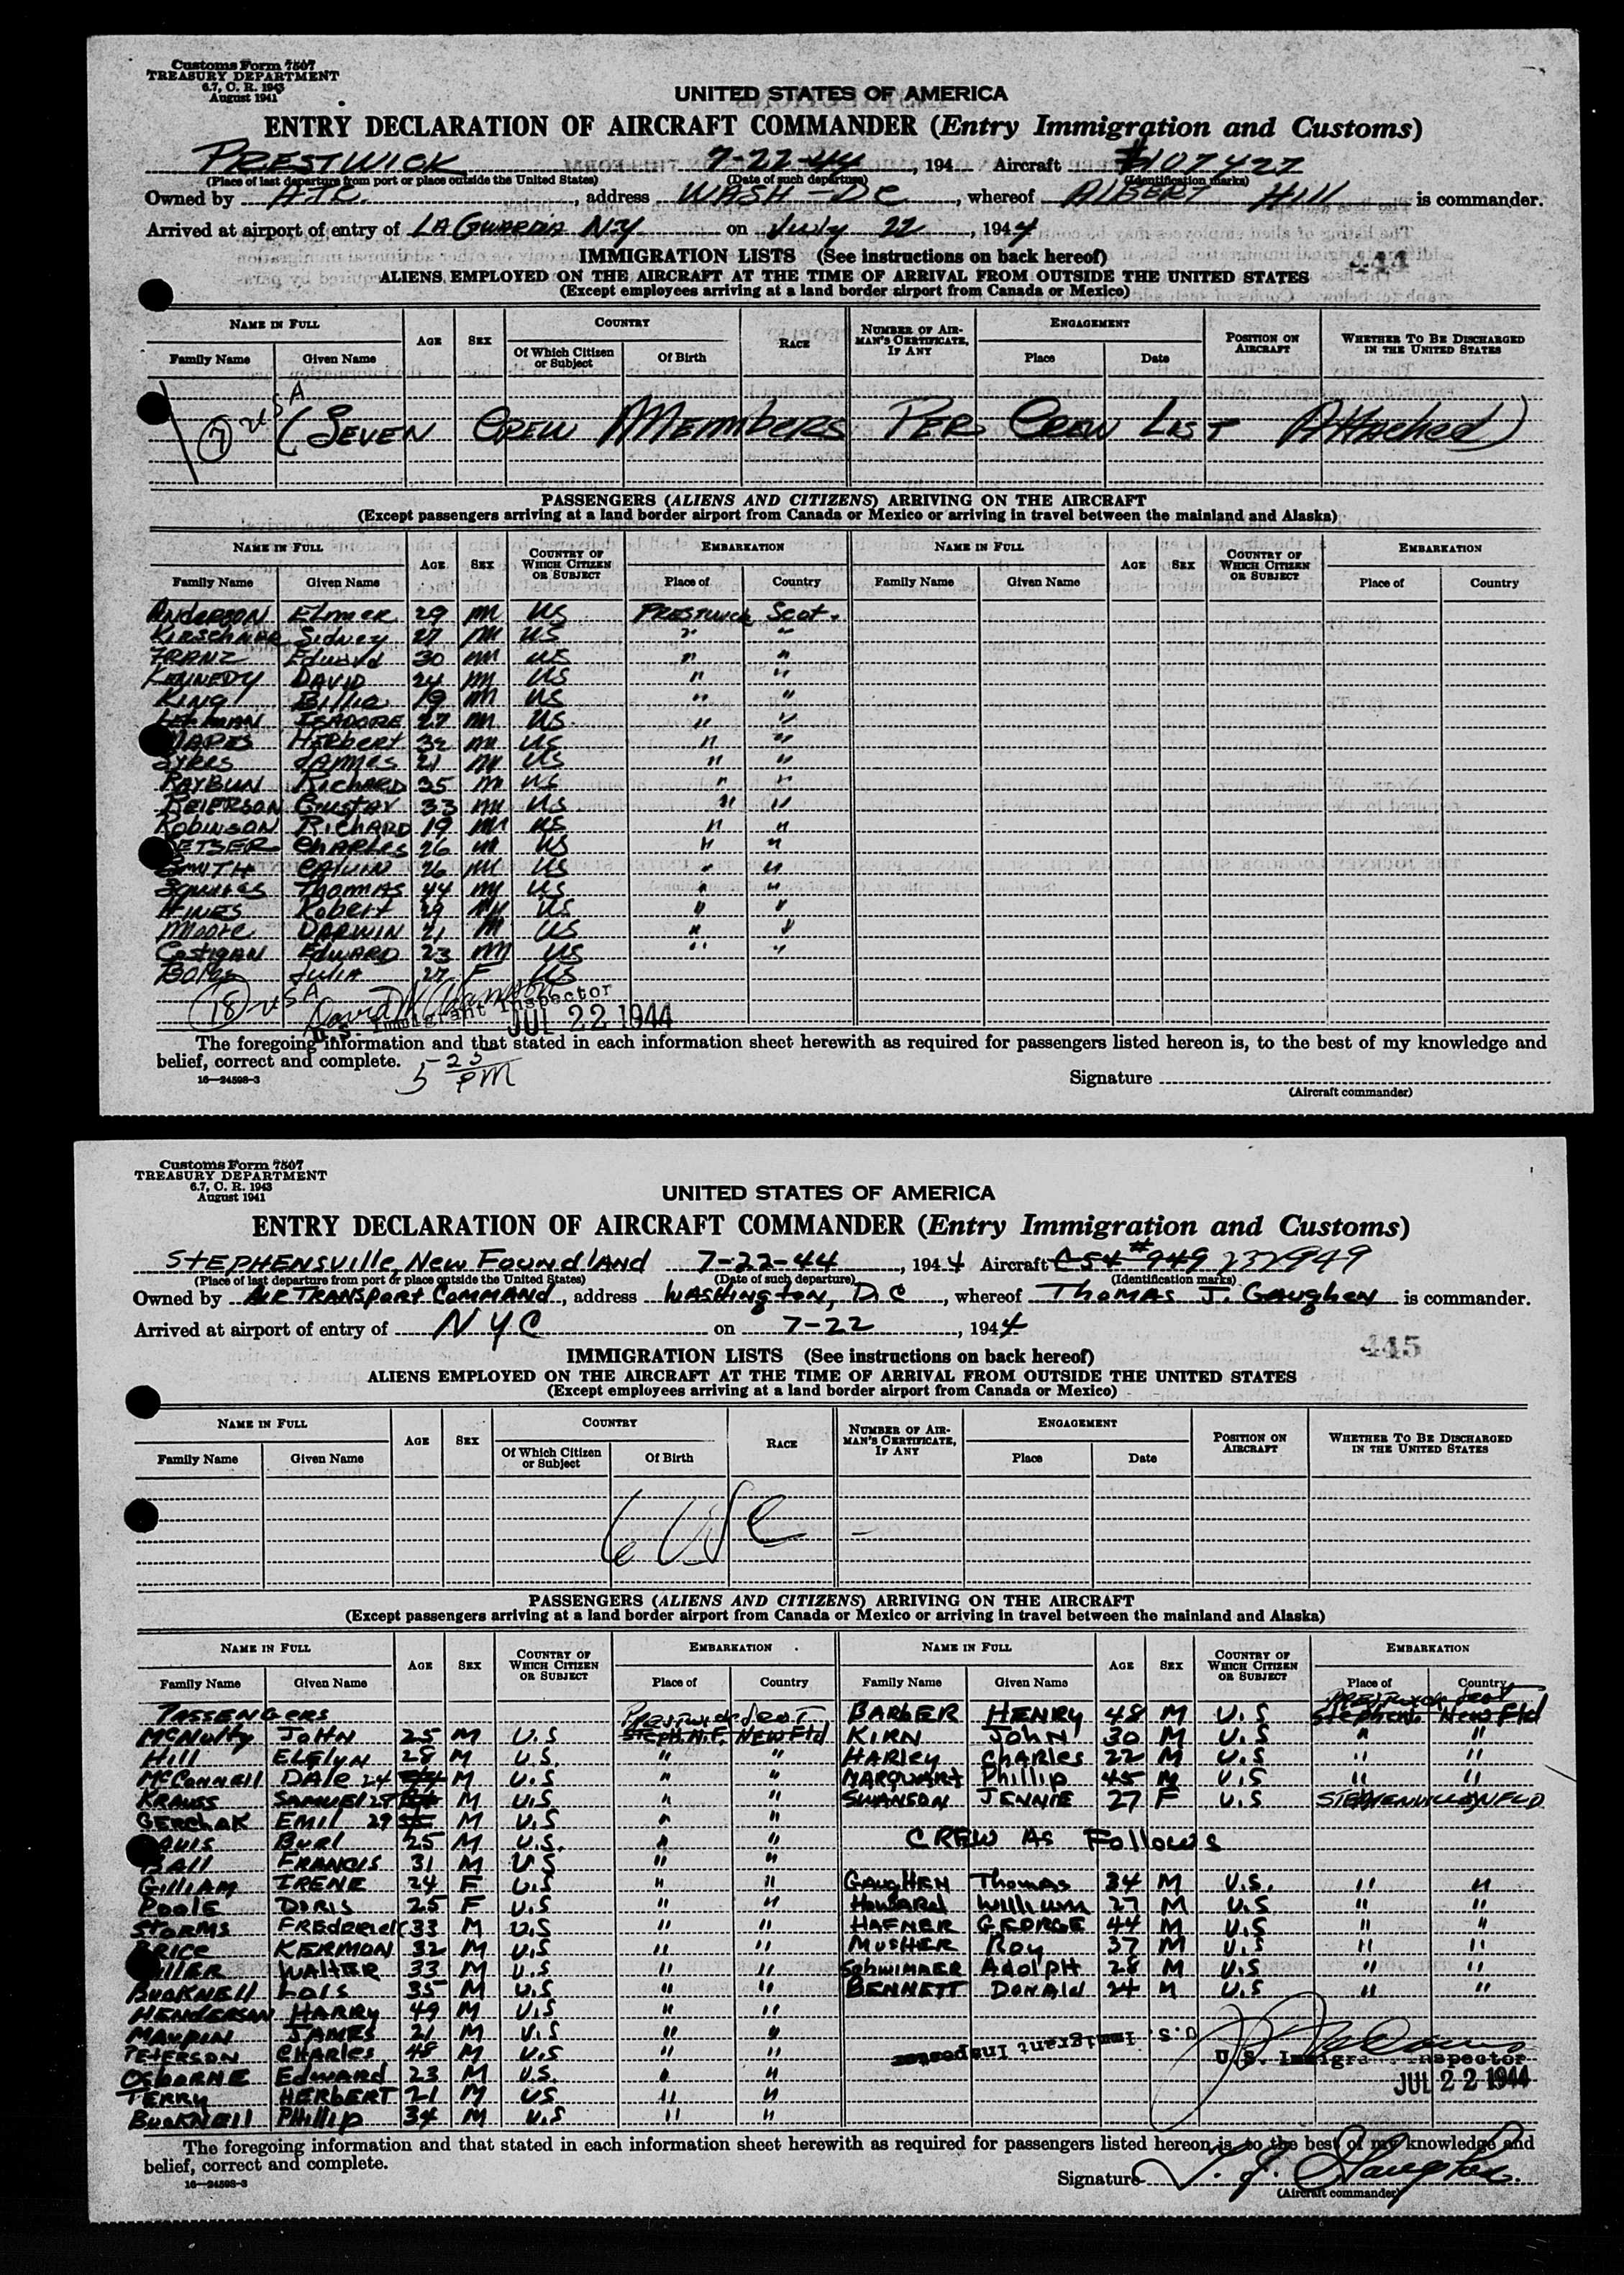 Customs Form 7507
TREASURY DEPARTMENT
6.7, C. R. 1943
August 1941
UNITED STATES OF AMERICA
ENTRY DECLARATION OF AIRCRAFT COMMANDER (Entry Immigration and Customs)
PRESTWICK 7-22-44, 194 Aircraft #107427
(Place of last departure from port or place outside the United States) (Date of such departure) (Identification marks)
Owned by ATC, address WASH - DC, whereof ALBERT Hill is commander.
Arrived at airport of entry of LAGuardia NY on July 22, 1944
444
IMMIGRATION LISTS (See instructions on back hereof)
ALIENS EMPLOYED ON THE AIRCRAFT AT THE TIME OF ARRIVAL FROM OUTSIDE THE UNITED STATES
(Except employees arriving at a land border airport from Canada or Mexico)
NAME IN FULL AGE SEX COUNTRY RACE NUMBER OF AIRMAN'S CERTIFICATE, IF ANY ENGAGEMENT POSITION ON AIRCRAFT WHETHER TO BE DISCHARGED IN THE UNITED STATES
Family Name Given Name Of Which Citizen or Subject Of Birth Place Date
7 USA (SEVEN CREW MEMbers PER CREW LIST Attached)
PASSENGERS (ALIENS AND CITIZENS) ARRIVING ON THE AIRCRAFT
(Except passengers arriving at a land border airport from Canada or Mexico or arriving in travel between the mainland and Alaska)
NAME IN FULL AGE SEX COUNTRY OF WHICH CITIZEN OR SUBJECT EMBARKATION NAME IN FULL AGE SEX COUNTRY OF WHICH CITIZEN OR SUBJECT EMBARKATION
Family Name Given Name Place of Country Family Name Given Name Place of Country
ANDERSON ELmer 29 M US PRESTWICK Scot.
KIRSCHNER Sidney 27 M US " "
FRANZ Edward 30 M US " "
KENNEDY DAVID 24 M US " "
KING Billie 19 M US " "
LEHMAN ISADORE 27 M US " "
MAPES HERbert 32 M US " "
Sykes JAMES 21 M US " "
RAYBUN RicHARD 35 M US " "
REIERSON Gustav 33 M US " "
ROBINSON RicHARD 19 M US " "
ETSER CHARLES 26 M US " "
SMITH CALVIN 26 M US " "
Squires Thomas 44 M US " "
HINES Robert 29 M US " "
Moore DARWIN 21 M US " "
Costigan EDWARD 23 M US " "
Julia 27 F US
18 USA
U.S. Immigrant Inspector
JUL 22 1944
The foregoing information and that stated in each information sheet herewith as required for passengers listed hereon is, to the best of my knowledge and
belief, correct and complete.
5 25 PM
16—24598-3
Signature
(Aircraft commander)
Customs Form 7507
TREASURY DEPARTMENT
6.7, C. R. 1943
August 1941
UNITED STATES OF AMERICA
ENTRY DECLARATION OF AIRCRAFT COMMANDER (Entry Immigration and Customs)
STEPHENSVille, New FoundLAND 7-22-44, 1944 Aircraft C54 #949 232949
(Place of last departure from port or place outside the United States) (Date of such departure) (Identification marks)
Owned by AIR TRANSPORT COMMAND, address WASHington, D C, whereof THOMAS J. Gaughen is commander.
Arrived at airport of entry of NYC on 7-22, 1944
445
IMMIGRATION LISTS (See instructions on back hereof)
ALIENS EMPLOYED ON THE AIRCRAFT AT THE TIME OF ARRIVAL FROM OUTSIDE THE UNITED STATES
(Except employees arriving at a land border airport from Canada or Mexico)
NAME IN FULL AGE SEX COUNTRY RACE NUMBER OF AIRMAN'S CERTIFICATE, IF ANY ENGAGEMENT POSITION ON AIRCRAFT WHETHER TO BE DISCHARGED IN THE UNITED STATES
Family Name Given Name Of Which Citizen or Subject Of Birth Place Date
6 USC -
PASSENGERS (ALIENS AND CITIZENS) ARRIVING ON THE AIRCRAFT
(Except passengers arriving at a land border airport from Canada or Mexico or arriving in travel between the mainland and Alaska)
NAME IN FULL AGE SEX COUNTRY OF WHICH CITIZEN OR SUBJECT EMBARKATION NAME IN FULL AGE SEX COUNTRY OF WHICH CITIZEN OR SUBJECT EMBARKATION
Family Name Given Name Place of Country Family Name Given Name Place of Country
PASSENGERS Prestwick Scot BARBER HENRY 48 M U.S Prestwick Scot Stephens. New Fld
McNulty JOHN 25 M U.S STEPH. N.F. NEW Fld KIRN JOHN 30 M U.S " "
Hill ELELYN 28 M U.S. " " HARLEY CHARLES 22 M U.S " "
McConnell DALE 24 M U.S " " MARQUART Phillip 45 M U.S " "
KRAUSS SAMUEL 29 M U.S " " SWANSON JENNIE 27 F U.S STEPHENVILLE NFLD
GERCHAK EMIL 29 M U.S " "
DAVIS BURL 25 M U.S. " " CREW AS FOLLOWS
BALL FRANCIS 31 M U S " "
GILLIAM IRENE 24 F U.S " " GAUGHEN Thomas 34 M U.S. " "
POOLE DORIS 25 F U.S " " HOWARD William 27 M U.S " "
STORMS FREDERICK 33 M U.S " " HAFNER GEORGE 44 M U.S " "
PRICE KERMON 32 M U.S " " MUSHER Roy 37 M U.S " "
ILLER WALTER 33 M U.S " " SCHWIMMER ADOLPH 28 M U.S " "
BUCKNELL LOIS 35 M U.S " " BENNETT DONALD 24 M U.S " "
HENDERSON HARRY 49 M U.S " "
MAUPIN JAMES 21 M U.S " "
PETERSON CHARLES 48 M U.S " "
OSBORNE EDWARD 23 M U.S. " "
TERRY HERBERT 21 M US " "
BUCKNELL PHILLIP 34 M U.S " "
U.S. Immigrant Inspector
U.S. Immigrant Inspector
JUL 22 1944
The foregoing information and that stated in each information sheet herewith as required for passengers listed hereon is, to the best of my knowledge and
belief, correct and complete.
16—24598-3
Signature T. J. Gaughen
(Aircraft commander)